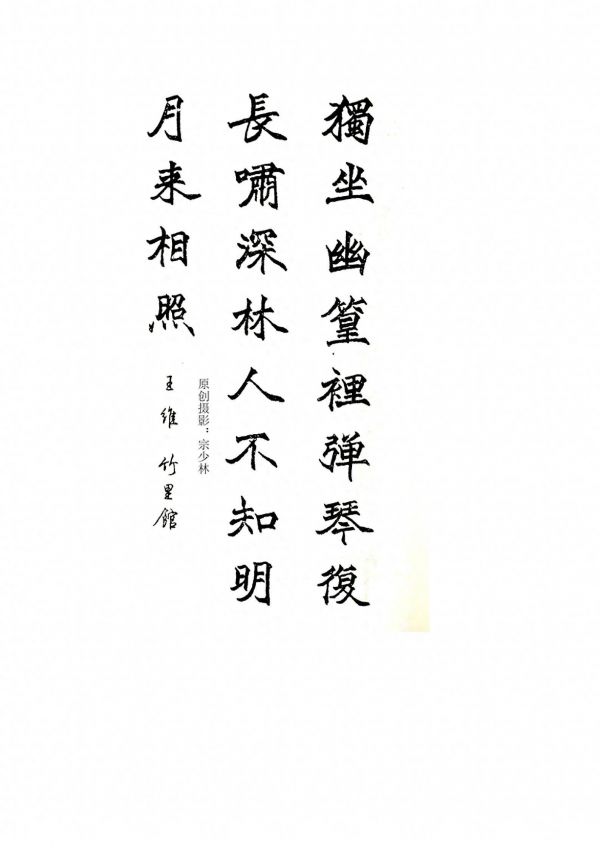 獨坐幽篁裡弹琴復
長嘯深林人不知明
月来相照
王维 竹里館
原创摄影：宗少林